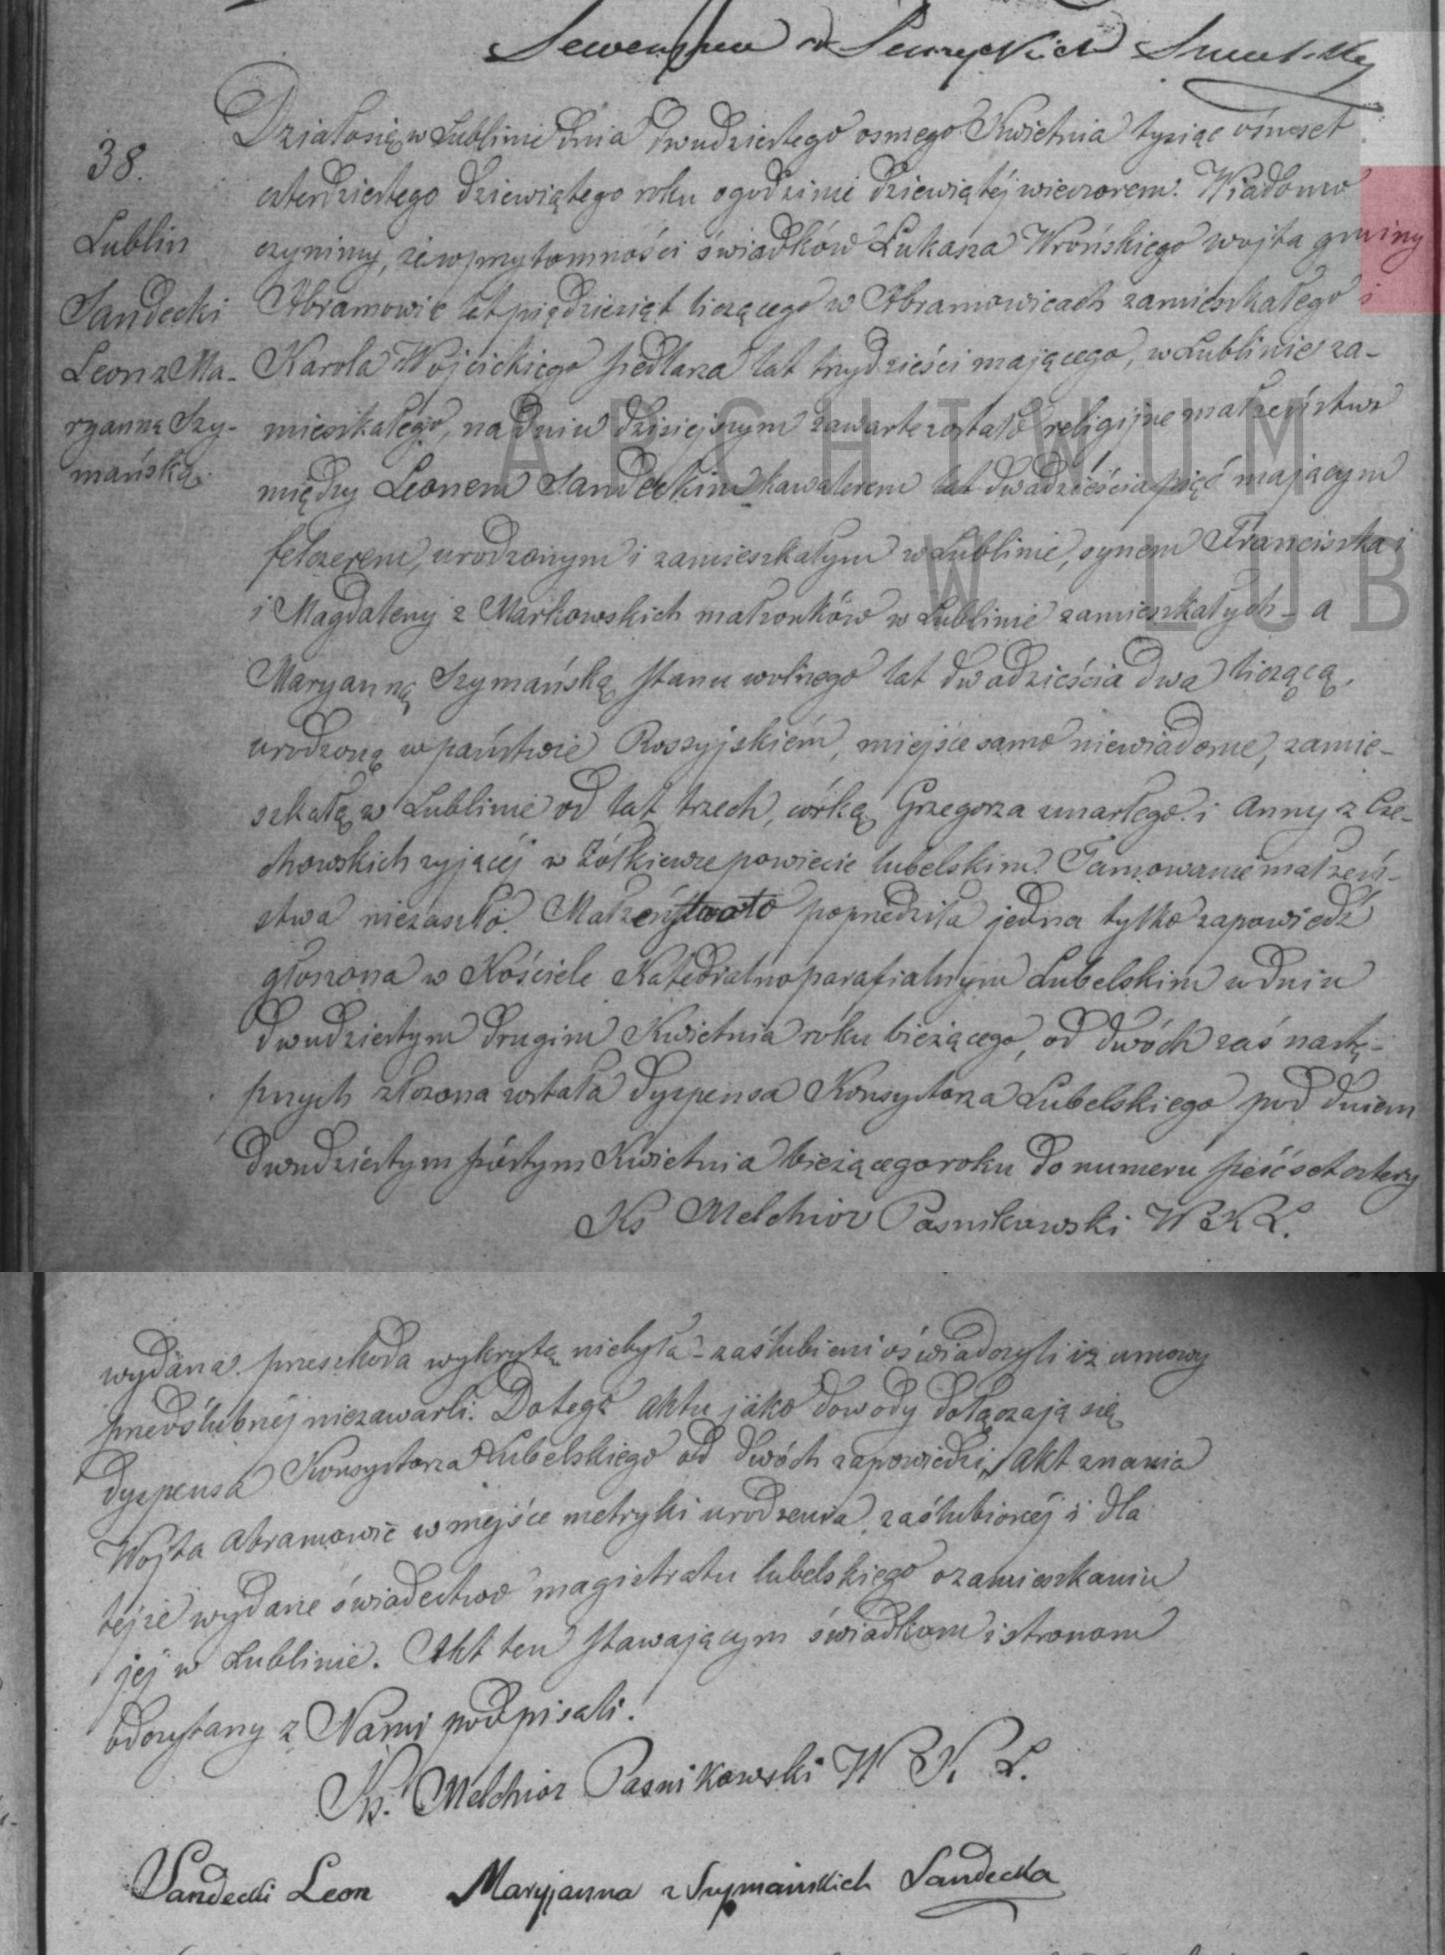 Seweryna z Smolskich
38.
Lublin
Sandecki
Leon z Ma-
ryanną Szy-
mańską.
Działo się w Lublinie dnia dwudziestego osmego Kwietnia tysiąc ośmset
czterdziestego dziewiątego roku o godzinie dziewiątéj wieczorem. Wiadomo
czynimy, że w przytomności świadków Łukasza Wrońskiego wojta gminy
Abramowic lat piędziesiąt liczącego w Abramowicach zamieszkałego i
Karola Wojcickiego siedlarza lat trzydzieści mającego, w Lublinie za-
mieszkałego, na dniu dzisiejszym zawarte zostało religijne małżeństwo
między Leonem Sandeckim kawalerem lat dwadzieścia pięć mającym
felczerem, urodzonym i zamieszkałym w Lublinie, synem Franciszka i
i Magdaleny z Markowskich małżonków w Lublinie zamieszkałych - a
Maryanną Szymańską stanu wolnego lat dwadzieścia dwa liczącą,
urodzoną w państwie Rossyjskiém, miejsce samo niewiadome, zamie-
szkałą w Lublinie od lat trzech, córką Grzegorza zmarłego i Anny z Cze-
chowskich żyjącéj w Żółkiewce powiecie lubelskim. Tamowanie małżeń-
stwa niezaszło. Małżeństwo to poprzedziła jedna tylko zapowiedź
głoszona w Kościele Katedralno parafialnym Lubelskim w dniu
dwudziestym drugim Kwietnia roku bieżącego, od dwóch zaś nastę-
pnych złożona została dyspensa Konsystorza Lubelskiego pod dniem
dwudziestym piątym Kwietnia bieżącego roku do numeru sześćset cztery
Ks Melchior Pasnikowski W K K L.
ARCHIWUM
W LUB
wydana. przeszkoda wykrytą niebyła - zaślubieni oświadczyli iż umowy
przedślubnéj niezawarli. Do tego aktu jako dowody dołączają się
dyspensa Konsystorza Lubelskiego od dwóch zapowiedzi, akt znania
Wojta Abramowic w miejsce metryki urodzenia zaślubionéj i dla
tejże wydane świadectwo magistratu lubelskiego o zamieszkaniu
jéj w Lublinie. Akt ten stawającym świadkom i stronom
odczytany z Nami podpisali.
Ks. Melchior Pasnikowski W K K L.
Sandecki Leon Maryjanna z Szymańskich Sandecka